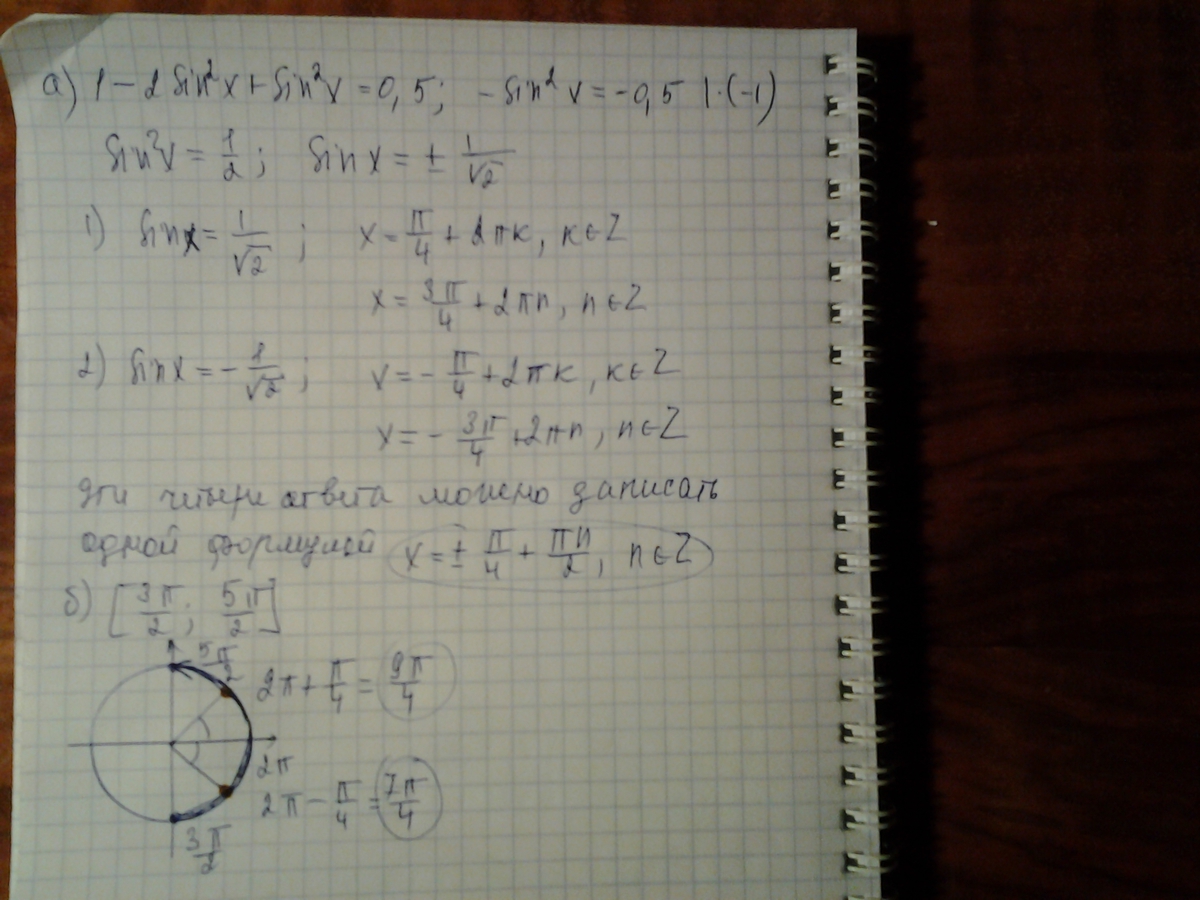 а) 1 - 2 sin²x + sin²x = 0,5; - sin²x = -0,5 | · (-1)
sin²x = 1/2; sin x = ± 1/√2
1) sin x = 1/√2; x = π/4 + 2πk, k ∈ Z
x = 3π/4 + 2πn, n ∈ Z
2) sin x = - 1/√2; x = - π/4 + 2πk, k ∈ Z
x = - 3π/4 + 2πn, n ∈ Z
Эти четыре ответа можно записать
одной формулой x = ± π/4 + πn/2, n ∈ Z
б) [3π/2; 5π/2]
5π/2
2π + π/4 = 9π/4
2π
2π - π/4 = 7π/4
3π/2